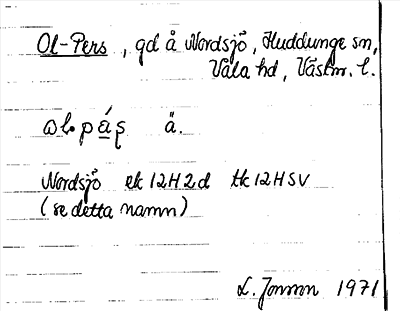 Ol-Pers, gd å Nordsjö, Huddunge sn,
Våla hd, Västm. l.
ɷl. pás̨ ä.
Nordsjö ek 12H2d tk 12HSV
(se detta namn)
L. Jonson 1971